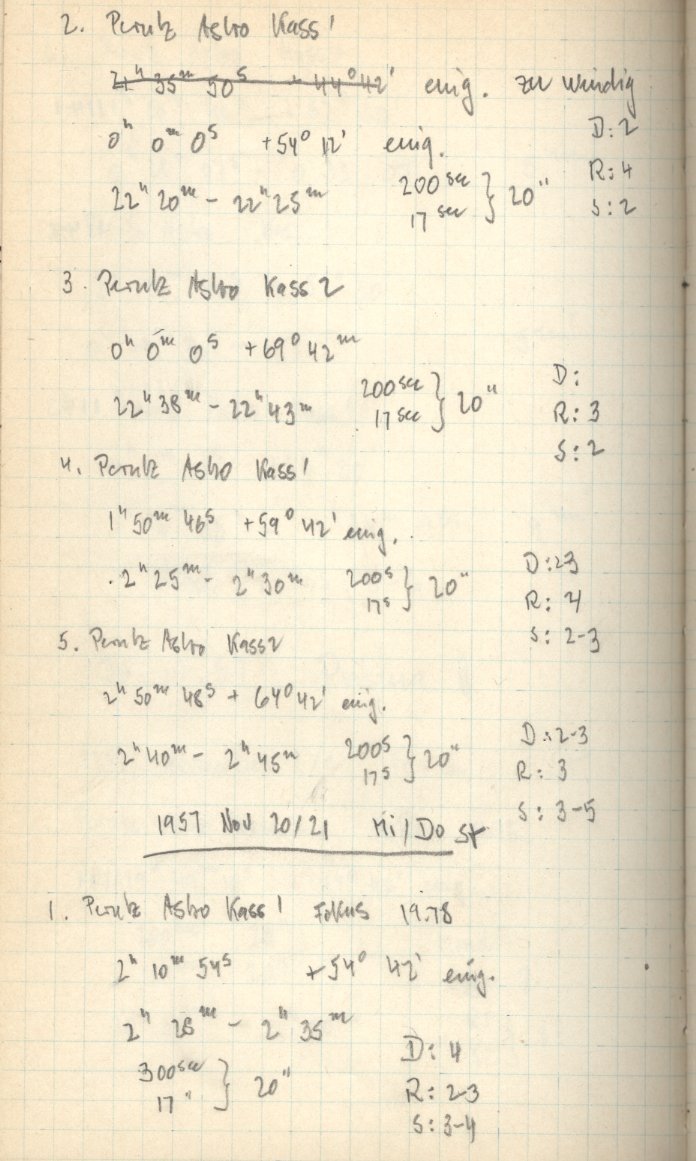 2. Perutz Astro Kass 1
21ʰ 35ᵐ 50ˢ + 44° 42' eing. zu windig
0ʰ 0ᵐ 0ˢ +54° 12' eing. D: 2
22ʰ 20ᵐ - 22ʰ 25ᵐ 200 sec } 20" R: 4
17 sec S: 2
3. Perutz Astro Kass 2
0ʰ 0ᵐ 0ˢ +69° 42ᵐ
22ʰ 38ᵐ - 22ʰ 43ᵐ 200 sec } 20" D:
17 sec R: 3
S: 2
4. Perutz Astro Kass 1
1ʰ 50ᵐ 46ˢ +59° 42' eing.
2ʰ 25ᵐ - 2ʰ 30ᵐ 200ˢ } 20" D: 23
17ˢ R: 4
S: 2-3
5. Perutz Astro Kass 2
2ʰ 50ᵐ 48ˢ + 64° 42' eing.
2ʰ 40ᵐ - 2ʰ 45ᵐ 200ˢ } 20" D: 2-3
17ˢ R: 3
S: 3-5
1957 Nov 20/21 Mi/Do St
1. Perutz Astro Kass 1 Fokus 19.78
2ʰ 10ᵐ 54ˢ +54° 42' eing.
2ʰ 28ᵐ - 2ʰ 35ᵐ
300 sec } 20" D: 4
17 " R: 23
S: 3-4